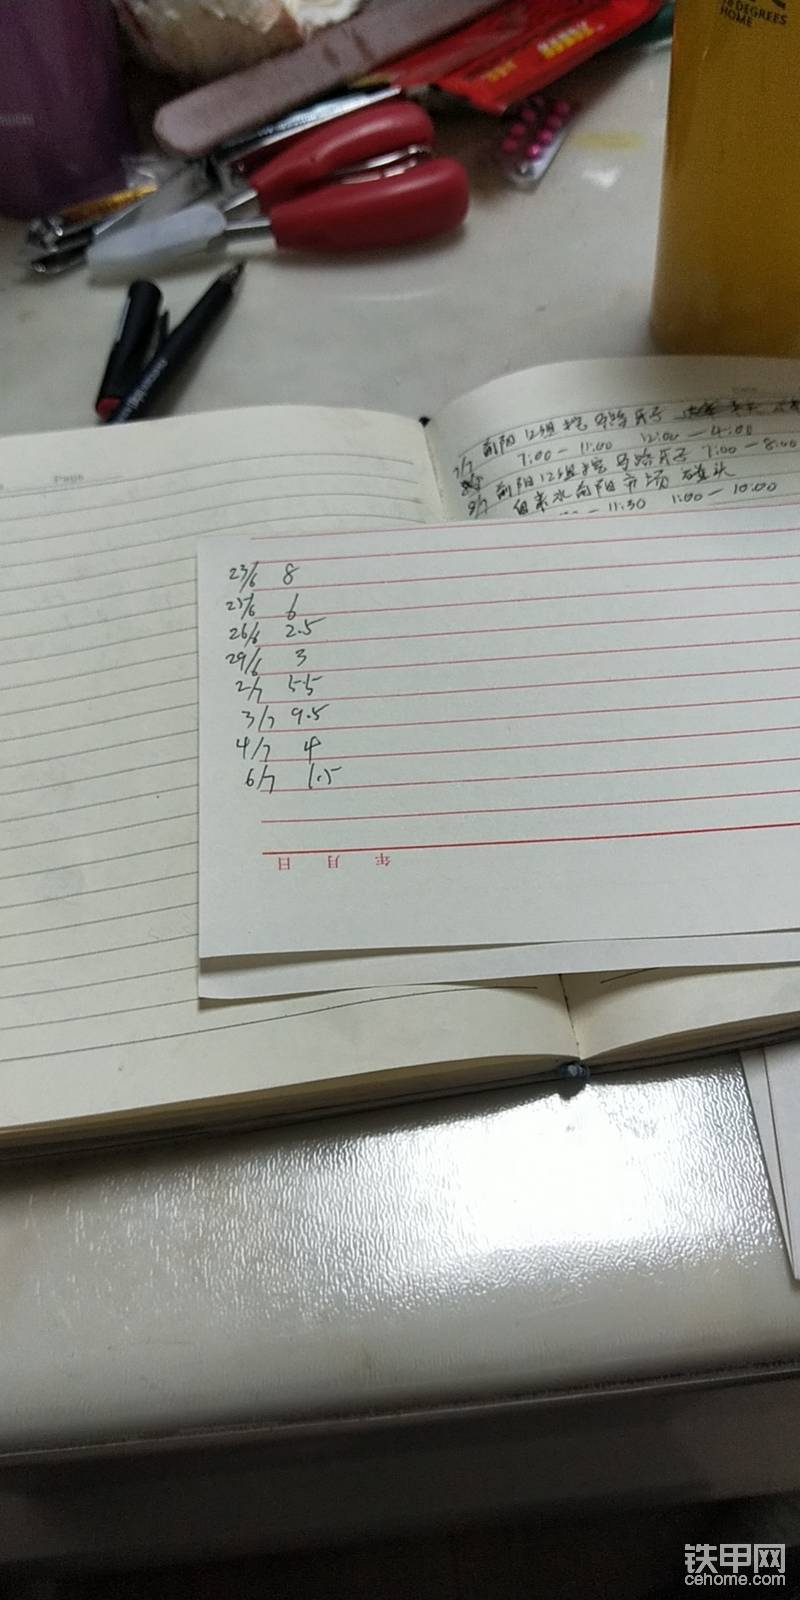 8 DEGREES
HOME
Page
7/7 前阳12组挖马路牙子
7:00-11:00 12:00-4:00
前阳12组挖马路牙子 7:00-8:00
8/7 自来水向阳市场
11:30 1:00-10:00
23/6 8
25/6 6
26/6 2.5
29/6 3
2/7 5.5
3/7 9.5
4/7 4
6/7 1.5
年 月 日
铁甲网
cehome.com